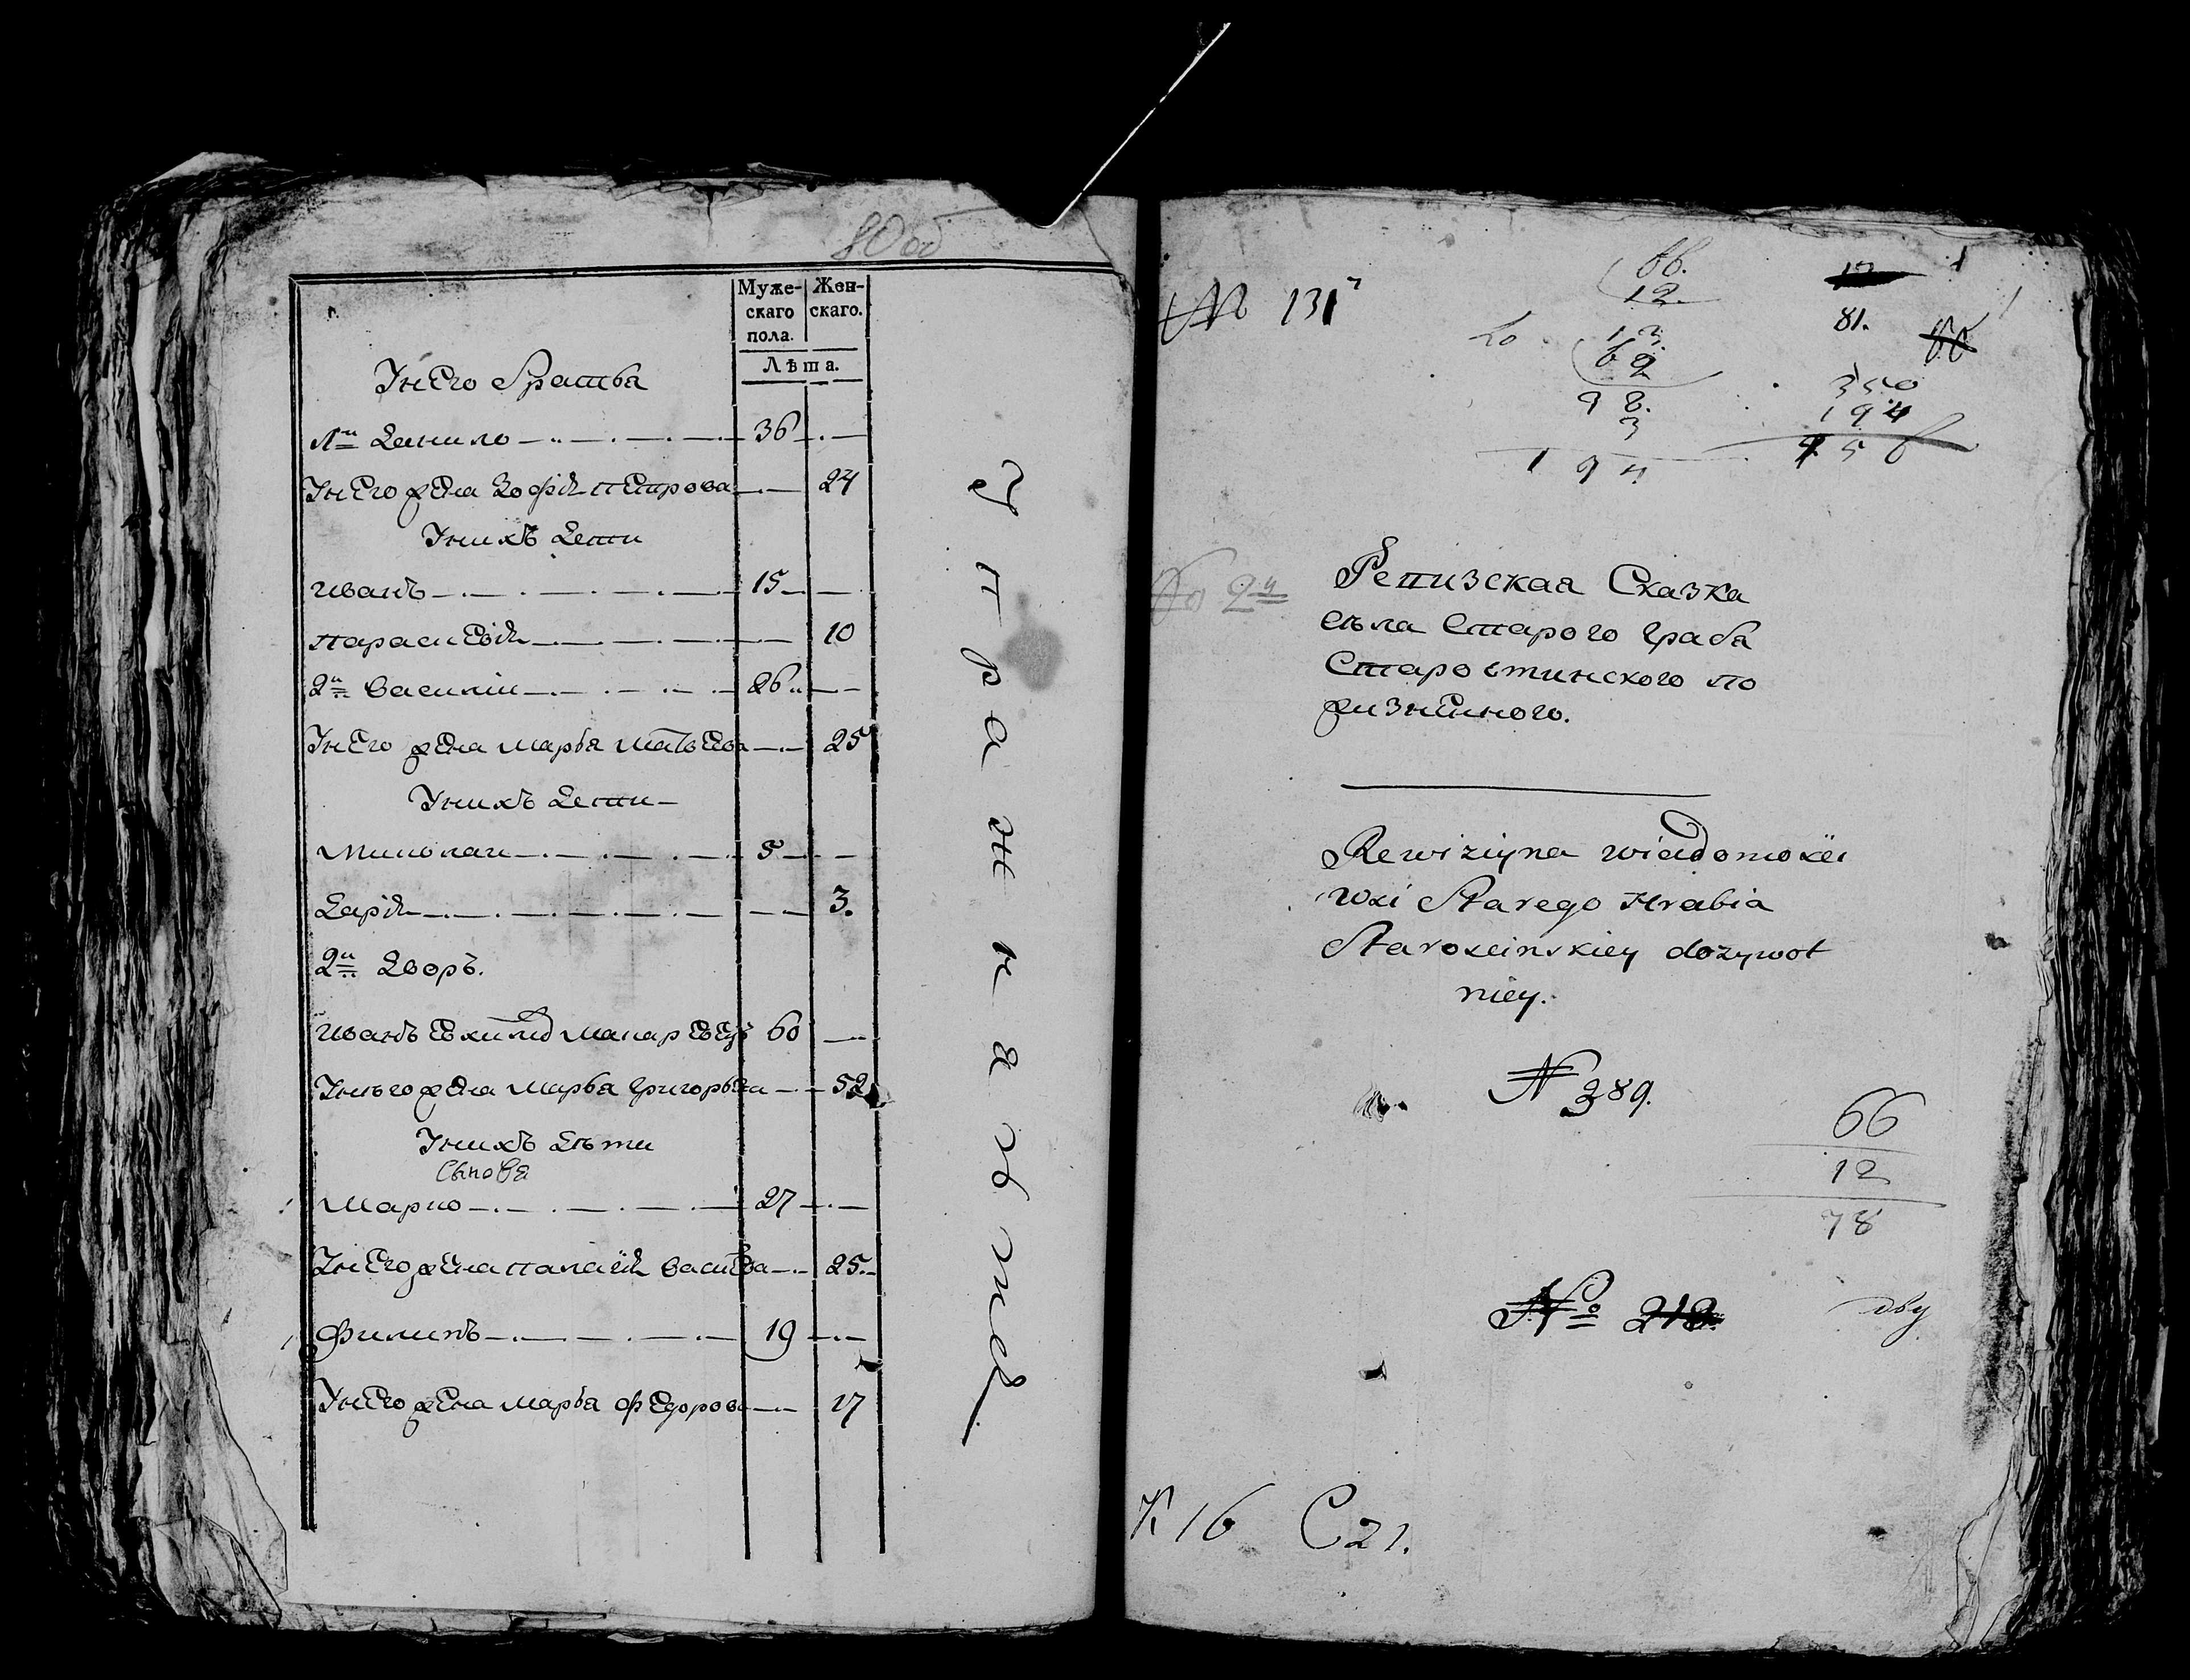 80 об
Муже-
скаго
пола.
Жен-
скаго.
Лѣта.
У нЕго Братья
1й Данило 36
У нЕго жЕна Зофія пЕтрова 24
У нихъ Дети
иванъ 15
парасковія 10
2й Василіи 26
У нЕго жЕна марья матвЕева 25
У нихъ Дети
Миколаи 5
Дарія 3.
2й Дворъ.
60
У нѣго жЕна марья григорьева 52
У нихъ Дѣти
Сыновя
Марко 27
У нЕго жЕна палагія 25
Филипъ 19
У нЕго жЕна марья фЕдорова 17
№ 131
66.
12.
13.
69
98.
3
194
81.
350
194
456
№ 94
Ревизская Сказка
сѣла Старого Граба
Старостинского по
жизнЕнного.
Rewizijna wiadomość
wsi Starego Hrabia
Starościnskiey dożywot
niey.
N 389.
66
12
78
№ 212
К 16 С 21.